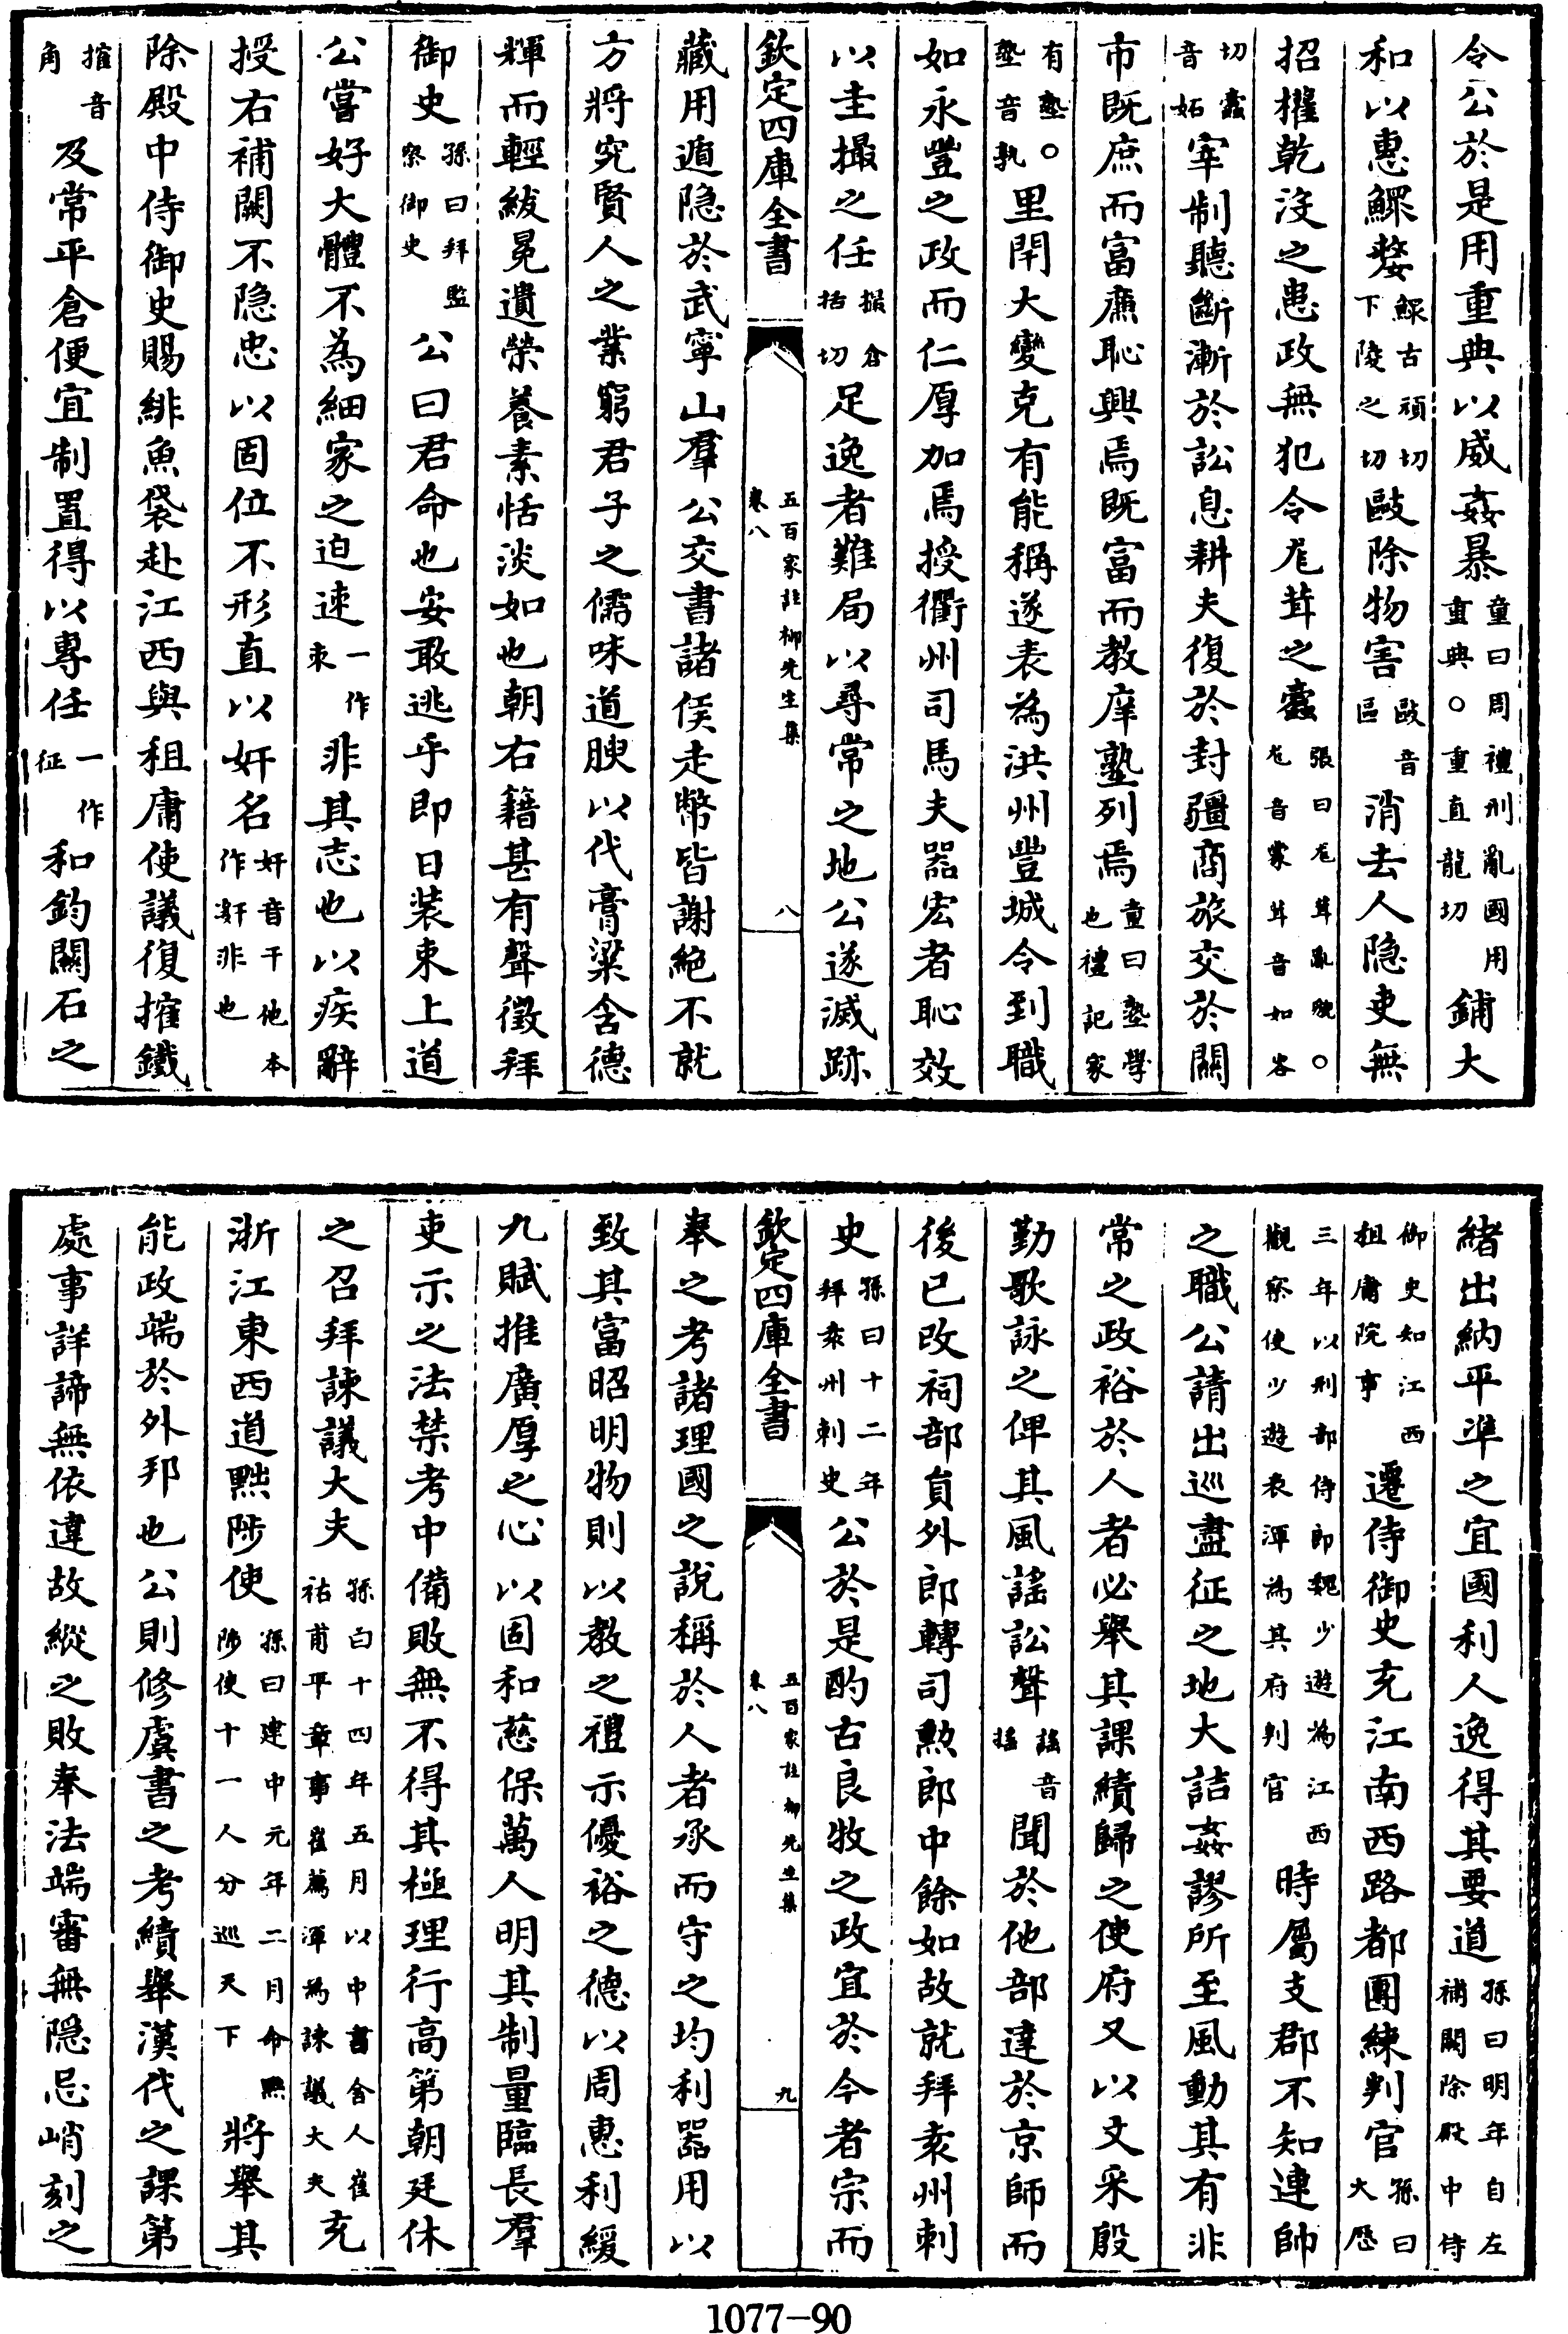 令公於是用重典以威姦暴童曰周禮刑亂國用重典○重直龍切鋪大
和以惠鰥嫠鰥古頑切下陵之切敺除物害敺音區消去人隐吏無
招權乾沒之患政無犯令尨茸之蠹張曰尨茸亂貌○尨音蒙茸音如容
切蠹音妬宰制聽斷漸於訟息耕夫復於封疆商旅交於關
市既庶而富廉恥興焉既富而教庠塾列焉童曰塾學也禮記家
有塾○塾音孰里閈大變克有能稱遂表為洪州豐城令到職
如永豐之政而仁厚加焉授衢州司馬夫器宏者恥效
以圭撮之任撮倉括切足逸者難局以尋常之地公遂滅跡
欽定四庫全書 五百家註柳先生集 卷八 八
藏用遁隐於武寧山羣公交書諸侯走幣皆謝絶不就
方將究賢人之業窮君子之儒味道腴以代膏粱含德
輝而輕紱冕遺榮養素恬淡如也朝右籍甚有聲徵拜
御史孫曰拜監察御史公曰君命也安敢逃乎即日裝束上道
公嘗好大體不為細家之迫速一作束非其志也以疾辭
授右補闕不隐忠以固位不形直以奸名奸音干他本作姧非也
除殿中侍御史賜緋魚袋赴江西與租庸使議復搉鐵
搉音角及常平倉便宜制置得以專任一作征和鈞關石之
緒出納平準之宜國利人逸得其要道孫曰明年自左補闕除殿中侍
御史知江西租庸院事遷侍御史充江南西路都團練判官孫曰大厯
三年以刑部侍郎魏少遊為江西觀察使少遊表渾為其府判官時屬支郡不知連帥
之職公請出巡盡征之地大詰姦謬所至風動其有非
常之政裕於人者必舉其課績歸之使府又以文采殷
勤歌詠之俾其風謡訟聲謡音摇聞於他部達於京師而
後已改祠部員外郎轉司勲郎中餘如故就拜袁州刺
史孫曰十二年拜袁州刺史公於是酌古良牧之政宜於今者宗而
欽定四庫全書 五百家註柳先生集 卷八 九
奉之考諸理國之說稱於人者承而守之均利器用以
致其富昭明物則以教之禮示優裕之德以周惠利緩
九賦推廣厚之心以固和慈保萬人明其制量臨長羣
吏示之法禁考中備敗無不得其極理行高第朝廷休
之召拜諫議大夫孫曰十四年五月以中書舍人崔祐甫平章事崔薦渾為諫議大夫充
浙江東西道黜陟使孫曰建中元年二月命黜陟使十一人分巡天下將舉其
能政端於外邦也公則修虞書之考績舉漢代之課第
處事詳諦無依違故縱之敗奉法端審無隠忌峭刻之
1077-90